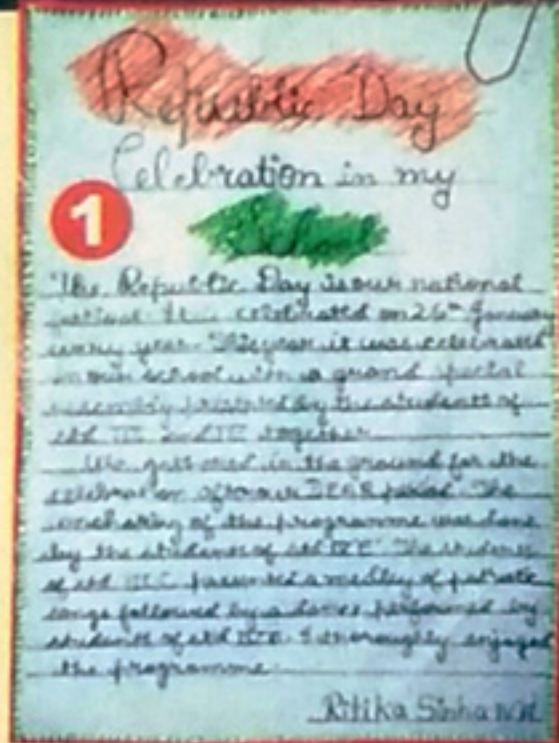 Republic Day
Celebration in my
School
1
The Republic Day is our national
festival. It is celebrated on 26th January
every year. This year it was celebrated
in our school with a grand special
assembly presented by the students of
std III and IV together.
We gathered in the ground for the
celebration after our DEAR period. The
anchoring of the programme was done
by the students of std
of std presented a medley of
songs followed by a dance performed by
students of std I thoroughly enjoyed
the programme.
Ritika Sinha